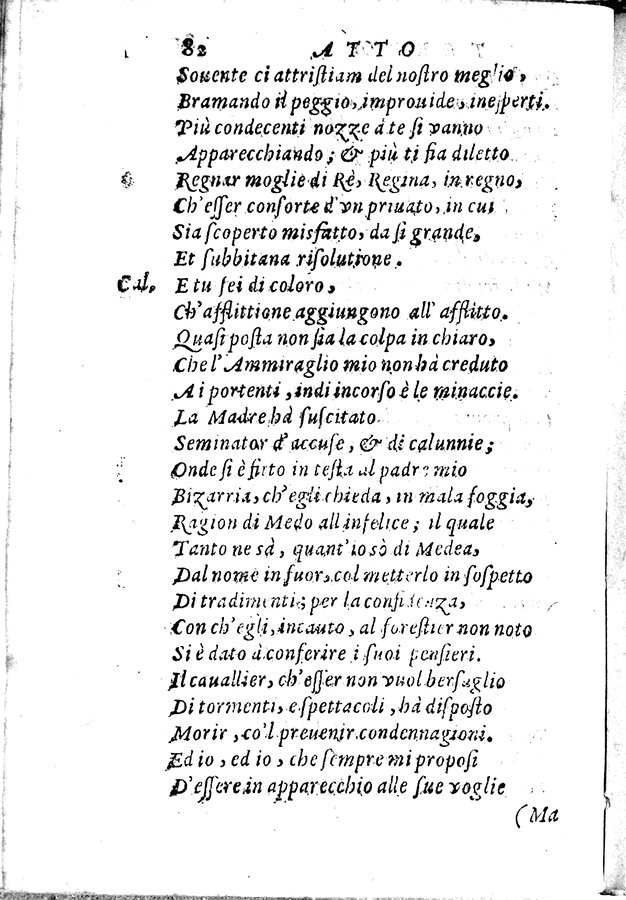 82 ATTO
Souente ci attristiam del nostro meglio,
Bramando il peggio, improuide, inesperti.
Più condecenti nozze à te si vanno
Apparecchiando; & più ti fia diletto
Regnar moglie di Rè, Regina, in regno,
Ch'esser consorte d'vn priuato, in cui
Sia scoperto misfatto, da sì grande,
Et subbitana risolutione.
Cal. E tu sei di coloro,
Ch'afflittione aggiungono all' afflitto.
Quasi posta non sia la colpa in chiaro,
Che l'Ammiraglio mio non hà creduto
A i portenti, indi incorso è le minaccie.
La Madre hà suscitato
Seminator d'accuse, & di calunnie;
Onde si è fitto in testa al padre mio
Bizarria, ch'egli chieda, in mala foggia,
Ragion di Medo all'infelice; il quale
Tanto ne sà, quant'io sò di Medea,
Dal nome in fuor, col metterlo in sospetto
Di tradimenti; per la confidenza,
Con ch'egli, incauto, al forestier non noto
Si è dato à conferire i suoi pensieri.
Il cauallier, ch'esser non vuol bersaglio
Di tormenti, e spettacoli, hà disposto
Morir, co'l preuenir condennagioni.
Ed io, ed io, che sempre mi proposi
D'essere in apparecchio alle sue voglie
(Ma